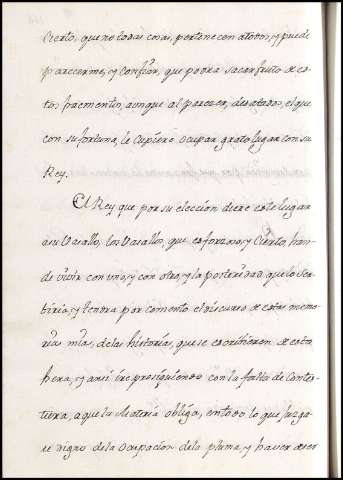 Cierto, que no todas cosas, pertenecen atodos, y puede
parecerme, y confiar, que podra sacar fruto de es
tos fracmentos, aunque al parecer, desatados, el que
con su fortuna, le cupiere ocupar grato lugar con su
Rey.
El Rey que por su eleccion diere este lugar
asu Vasallo, los Vasallos, que es forzoso, y Cierto, han
de vivir con uno, y con otro, y la posteridad que lo
y tendra por comento el discurso de estas memo
rias mias, delas historias, que se escribieren de esta
hera, y ansi ire prosiguiendo con la falta de Contes
tura, aque la Materia obliga, entodo lo que juzga
re digno dela Ocupacion dela pluma, y haver de ser